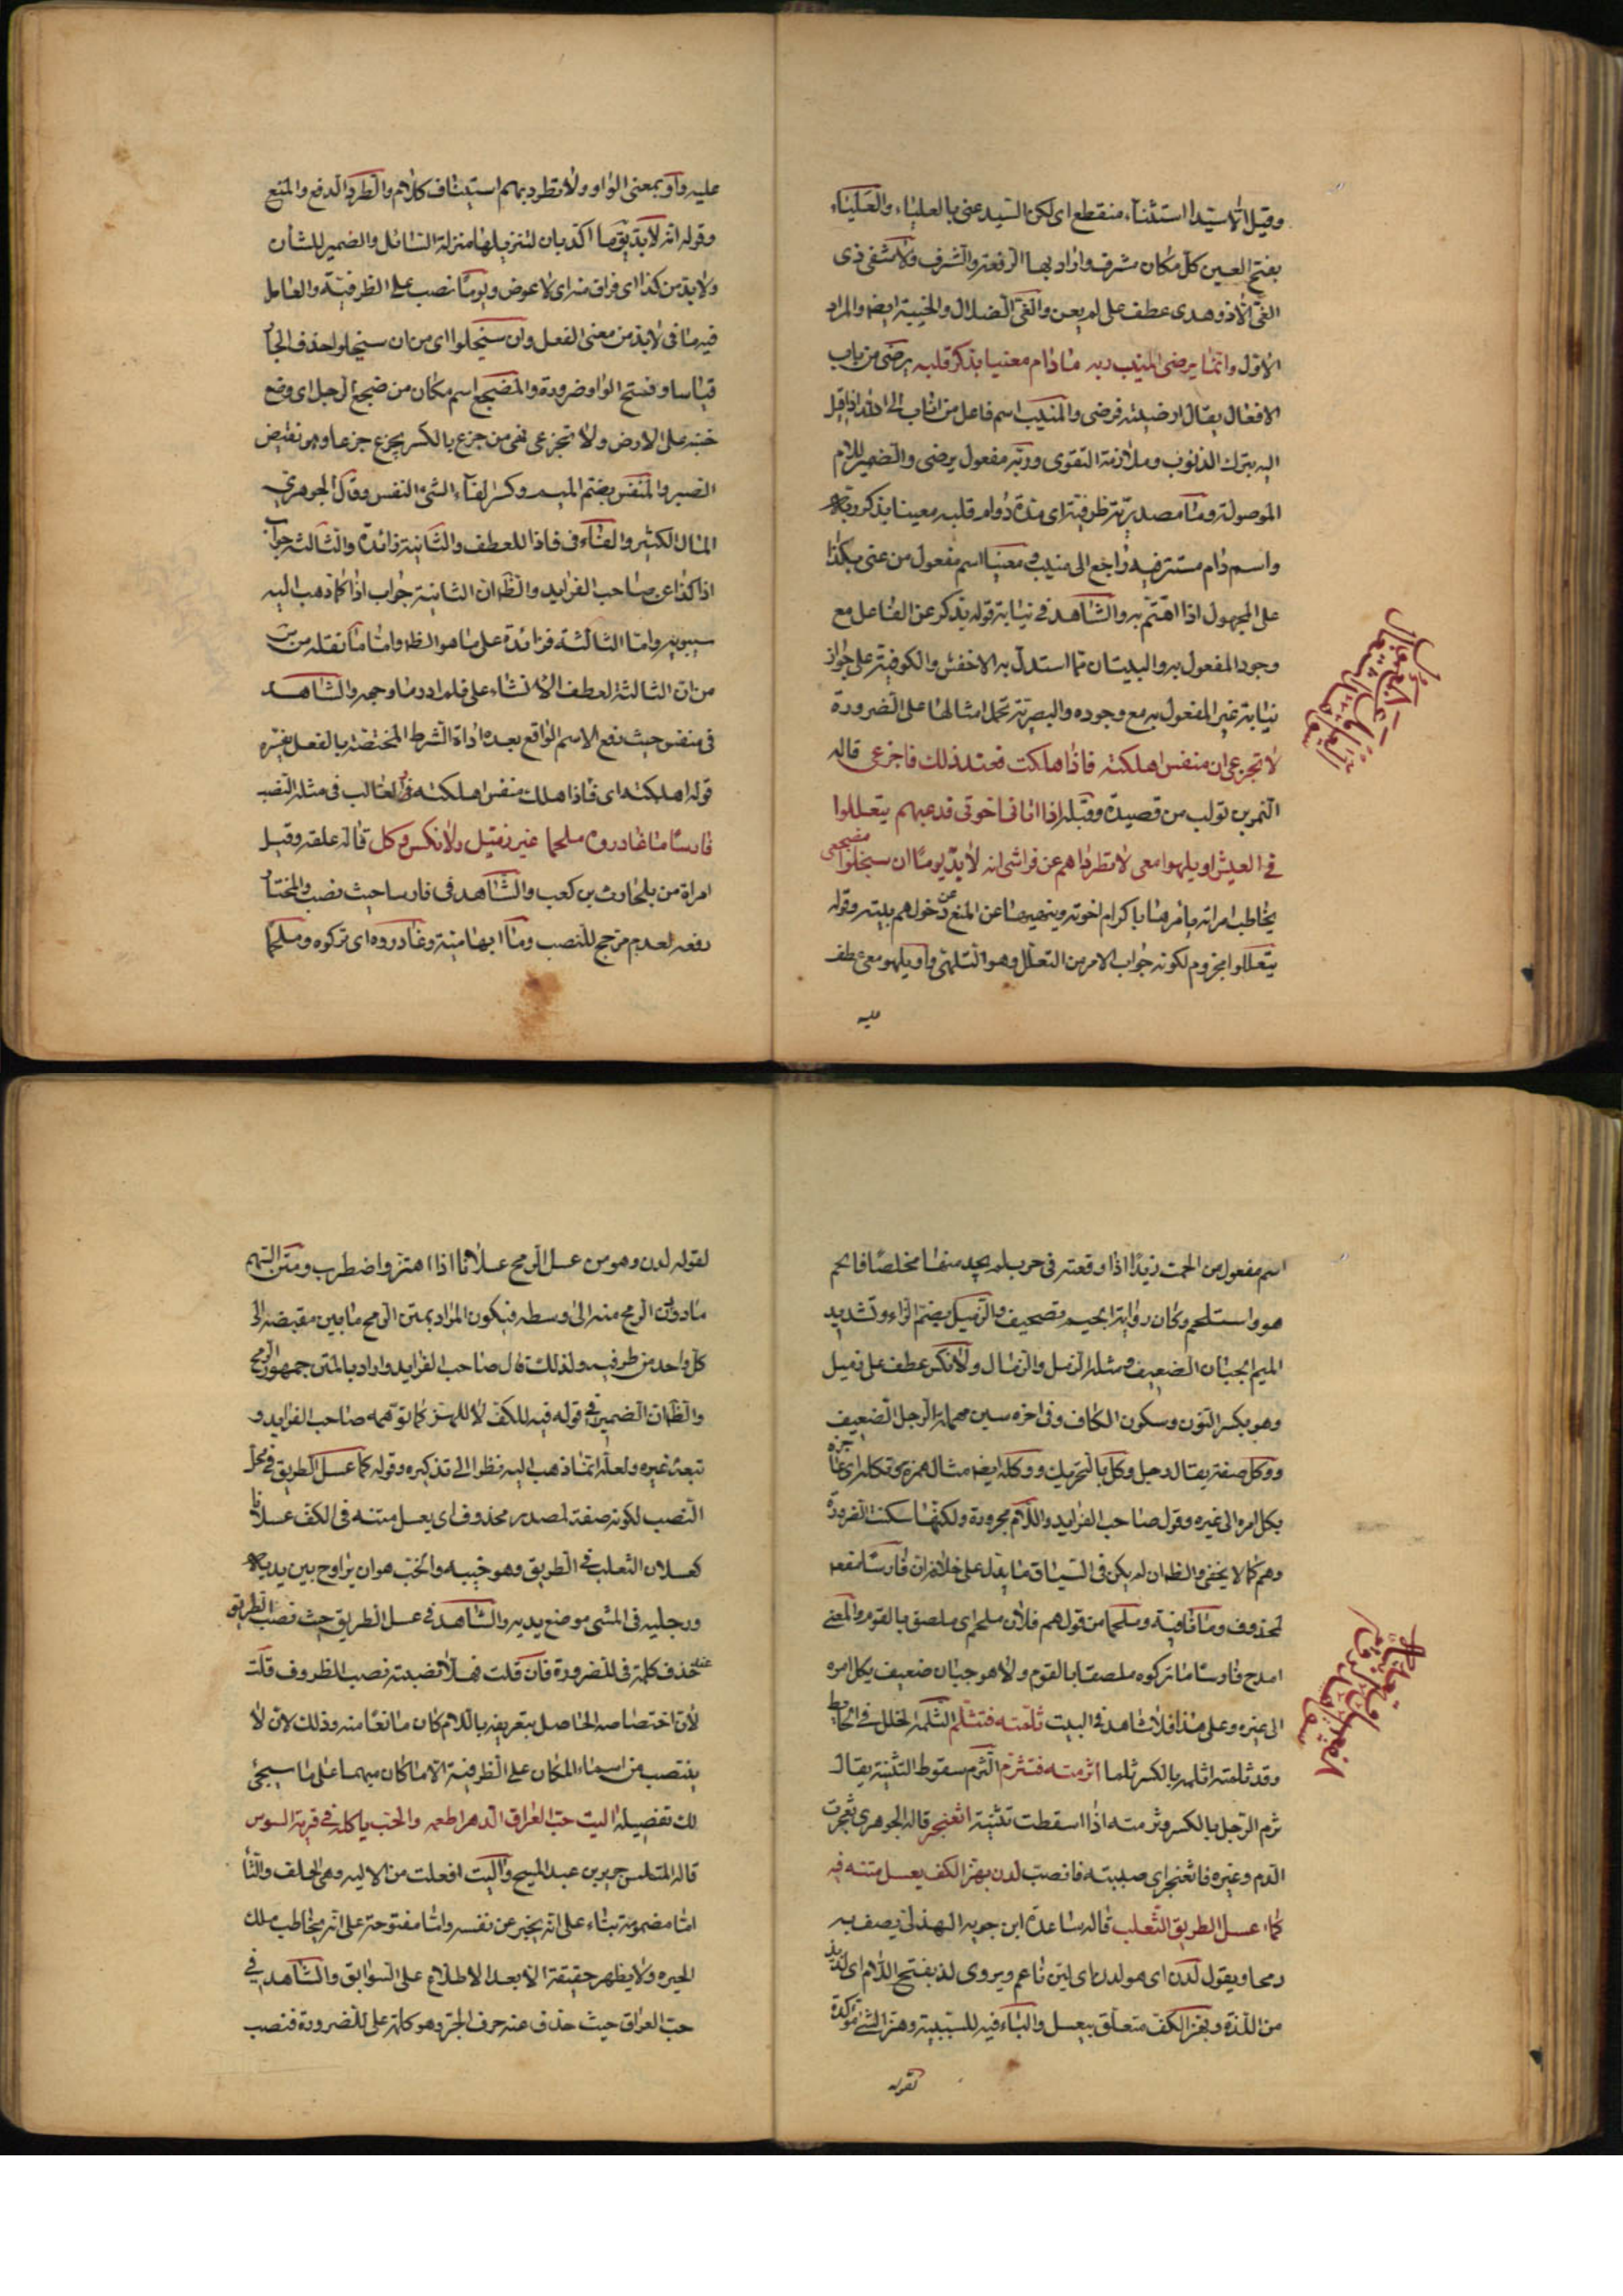 وقيل الا سيدا استثناء منقطع اى لكن السيد عنى بالعلياء والعلياء
بفتح العين كل مكان مشرف واراد بها الرفعة والشرف ولا شفى ذى
الغى الا ذو هدى عطف على لم يعن والغى الضلال والخيبة ايضا والمراد
الاول وانما يرضى المنيب ربه ما دام معنيا بذكر قلبه يرضى من باب
الافعال يقال ارضيته فرضى والمنيب اسم فاعل من اناب الى الله اذا اقبل
اليه بترك الذنوب وملازمة التقوى وربه مفعول يرضى والضمير للام
الموصولة وما مصدرية ظرفية اى مدة دوام قلبه معينا بذكر ربه
واسم دام مستتر فيه راجع الى منيب ومعنيا اسم مفعول من عنى بكذا
على المجهول اذا اهتم به والشاهد فى نيابة قوله بذكر عن الفاعل مع
وجود المفعول به والبيتان مما استدل به الاخفش والكوفية على جواز
نيابة غير المفعول به مع وجوده والبصرية تحمل امثالها على الضرورة
لا تجزعى ان منفس اهلكته فاذا هلكت فعند ذلك فاجزعى قاله
النمر بن تولب من قصيدة وقبله اذا اتانى اخوتى فدعيهم يتعللوا
فى العيش او يلهوا معى لا تطرداهم عن فراشى انه لا بد يوما ان سيخلوا مضجعى
يخاطب امراته يامرها باكرام اخوته وينهيها عن المنع عن دخولهم بيته وقوله
يتعللوا مجزوم لكونه جواب الامر من التعلل وهو التلهى واو يلهو معى عطف
عليه
عليه واو بمعنى الواو ولا تطرديهم استيناف كلام والطرد الدفع والمنع
وقوله انه لا بد يوما اكد بان لتنزيلها منزلة السائل والضمير للشأن
ولا بد من كذا اى فراق منه اى لا عوض ويوما نصب على الظرفية والعامل
فيه ما فى لا بد من معنى الفعل وان سيخلوا اى من ان سيخلوا حذف الجار
قياسا وفتح الواو ضرورة والمضجع اسم مكان من ضجع الرجل اى وضع
جنبه على الارض ولا تجزعى نفى من جزع بالكسر يجزع جزعا وهو نقيض
الصبر والمنفس بضم الميم وكسر الفاء الشئ النفس وقال الجوهرى
المال الكثير والفاء فى فاذا للعطف والثانية زائدة والثالثة جواب
اذا كذا عن صاحب الفرايد والظ ان الثانية جواب اذا كما ذهب اليه
سيبويه واما الثالثة فزائدة على ما هو الظ واما ما نقله من
من ان الثالثة لعطف الانشاء على فلم ادر ما وجهه والشاهد
فى منفس حيث رفع الاسم الواقع بعده اداة الشرط المختصة بالفعل يفسره
قوله اهلكته اى فاذا هلك منفس اهلكته فى الغالب فى مثله النصب
فارسا ما غادروه ملحما غير زميل ولا نكس وكل قاله علقمة وقيل
امراة من بلحارث بن كعب والشاهد فى فارسا حيث نصب والمختار
رفعه لعدم مرجح للنصب وما ابهامية وغادروه اى تركوه وملحما
اسم مفعول من الحمت زيدا اذا اوقعته فى حرب لم يجد منها مخلصا فالحم
هو واستلحم وكان روايته بجيم تصحيف والزميل بضم الزاء وتشديد
الميم الجبان الضعيف ومثله الزمل والزمال ولا نكس عطف على زميل
وهو بكسر النون وسكون الكاف وفى اخره سين مهملة الرجل الضعيف
ووكل صفة يقال رجل وكل بالتحريك ووكلة ايضا مثال همزة وتكلة اى عاجز
يكل امره الى غيره وقول صاحب الفرايد واللام مجرورة ولكنها سكنت للضرورة
وهم كما لا يخفى والظ ان لم يكن فى السياق ما يدل على خلافه ان فارسا مفعول
لمحذوف وما نافية وملحما من قولهم فلان ملحم اى ملصق بالقوم والمعنى
امدح فارسا ما تركوه ملصقا بالقوم ولا هو جبان ضعيف يكل امره
الى غيره وعلى هذا فلا شاهد فى البيت ثلمته فتثلم الثلمة الخلل فى الحايط
وقد ثلمته اثلمه بالكسر ثلما اثرمته فتثرم الثرم سقوط الثنية يقال
ثرم الرجل بالكسر وثرمته اذا اسقطت ثنيته اثعنجر قاله الجوهرى ثعجرت
الدم وغيره فاثعنجر اى صببته فانصب لدن بهز الكف يعسل متنه فيه
كما عسل الطريق الثعلب قاله ساعدة ابن جوية الهذلى يصف به
رمحا ويقول لدن اى هو لدن اى لين ناعم ويروى لذ بفتح اللام اى لذيذ
من اللذة وبهز الكف متعلق بيعسل والباء فيه للسببية وهز الشئ مؤكدة
لقوله
لقوله لدن وهو من عسل الرمح عسلانا اذا اهتز واضطرب ومتن السهم
ما دون الرمح منه الى وسطه فيكون المراد بمتن الرمح ما بين مقبضه الى
كل واحد من طرفيه ولذلك قال صاحب الفرايد واراد بالمتن جمهور الرمح
والظ ان الضمير فى قوله فيه للكف لا للهز كما توهمه صاحب الفرايد و
تبعه غيره ولعله انما ذهب اليه نظرا الى تذكيره وقوله كما عسل الطريق فى محل
النصب لكونه صفة لمصدر محذوف اى يعسل متنه فى الكف عسلانا
كعسلان الثعلب فى الطريق وهو خببه والخبب هو ان يراوح بين يديه
ورجليه فى المشى موضع يديه والشاهد فى عسل الطريق حيث نصب الطريق
حذف كلمة فى للضرورة فان قلت فهلا نصبته نصب الظروف قلت
لان اختصاصه الحاصل بتعريفه باللام كان مانعا منه وذلك لان لا
ينتصب من اسماء المكان على الظرفية الا ما كان مبهما على ما سيجئ
لك تفصيله اليت حب العراق الدهر اطعمه والحب ياكله فى قرية السوس
قاله المتلمس جرير بن عبد المسيح واليت افعلت من الالية وهى الحلف والتاء
اما مضمومة بناء على انه يخبر عن نفسه واما مفتوحة على انه يخاطب ملك
الحيرة ولا يظهر حقيقة الا بعد الاطلاع على السوابق والشاهد فى
حب العراق حيث حذف عنه حرف الجر وهو كلمة على للضرورة فنصب